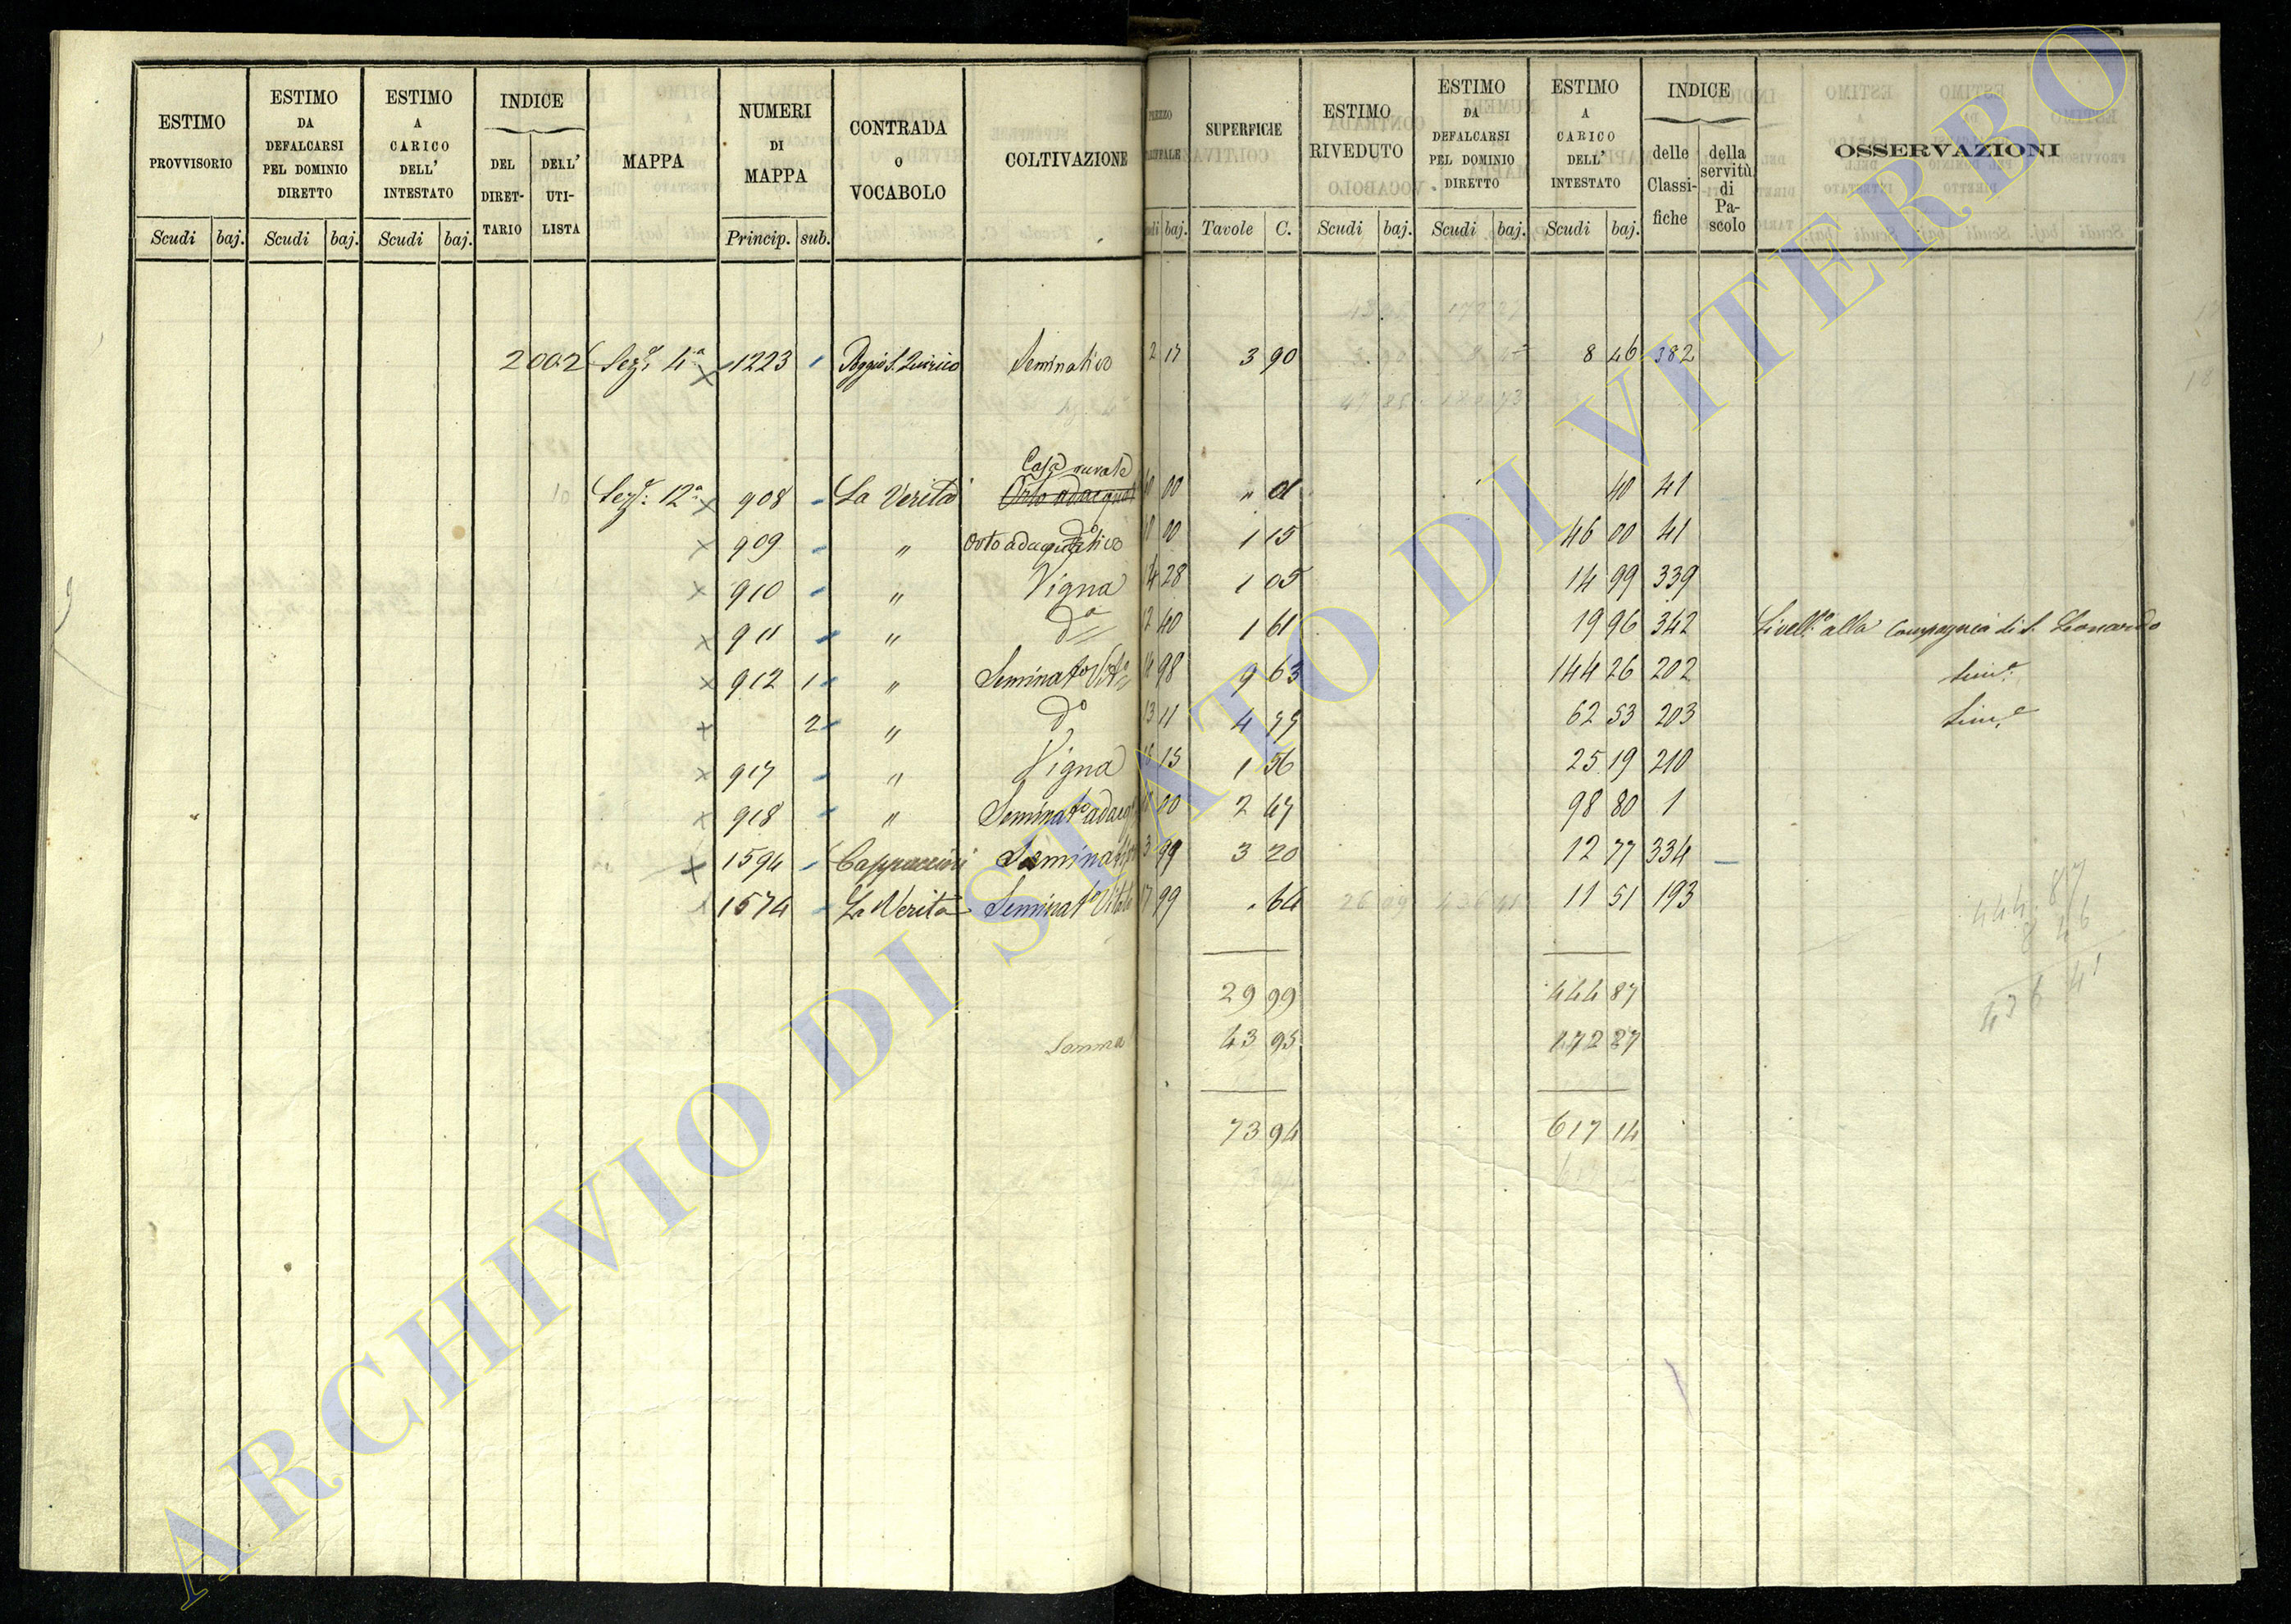 ESTIMO PROVVISORIO
Scudi baj.
ESTIMO DA DEFALCARSI PEL DOMINIO DIRETTO
Scudi baj.
ESTIMO A CARICO DELL' INTESTATO
Scudi baj.
INDICE
DEL DIRETTARIO
DELL' UTILISTA
MAPPA
NUMERI DI MAPPA
Princip. sub.
CONTRADA O VOCABOLO
COLTIVAZIONE
PREZZO
baj.
SUPERFICIE
Tavole C.
ESTIMO RIVEDUTO
Scudi baj.
ESTIMO DA DEFALCARSI PEL DOMINIO DIRETTO
Scudi baj.
ESTIMO A CARICO DELL' INTESTATO
Scudi baj.
INDICE
delle Classifiche
della servitù di Pascolo
OSSERVAZIONI
2002 Sezᵉ 4ª 1223 Poggio S. Quirico Seminativo 2 17 3 90 8 46 382
Casa rurale
Sezᵉ: 12ª 908 La Verità Orto adacquat 00 " 01 40 41
909 " Orto adacquativo 00 1 15 46 00 41
910 " Vigna 28 1 05 14 99 339
911 " dª 40 1 61 19 96 342 Livellº alla Compagnia di S. Leonardo
912 1 " Seminatº Vitº 98 9 63 144 26 202 Simᵉ
2 " dº 11 4 77 62 53 203 Simᵉ
917 " Vigna 15 1 56 25 19 210
918 " Seminatº adacq 00 2 47 98 80 1
1594 Cappuccini Seminativo 3 99 3 20 12 77 334
1574 La Verità Seminatº Vitato 17 99 . 64 11 51 193
29 99 444 87
Somma 43 95 172 27
73 94 617 14
444 87
8 46
436 41
ARCHIVIO DI STATO DI VITERBO